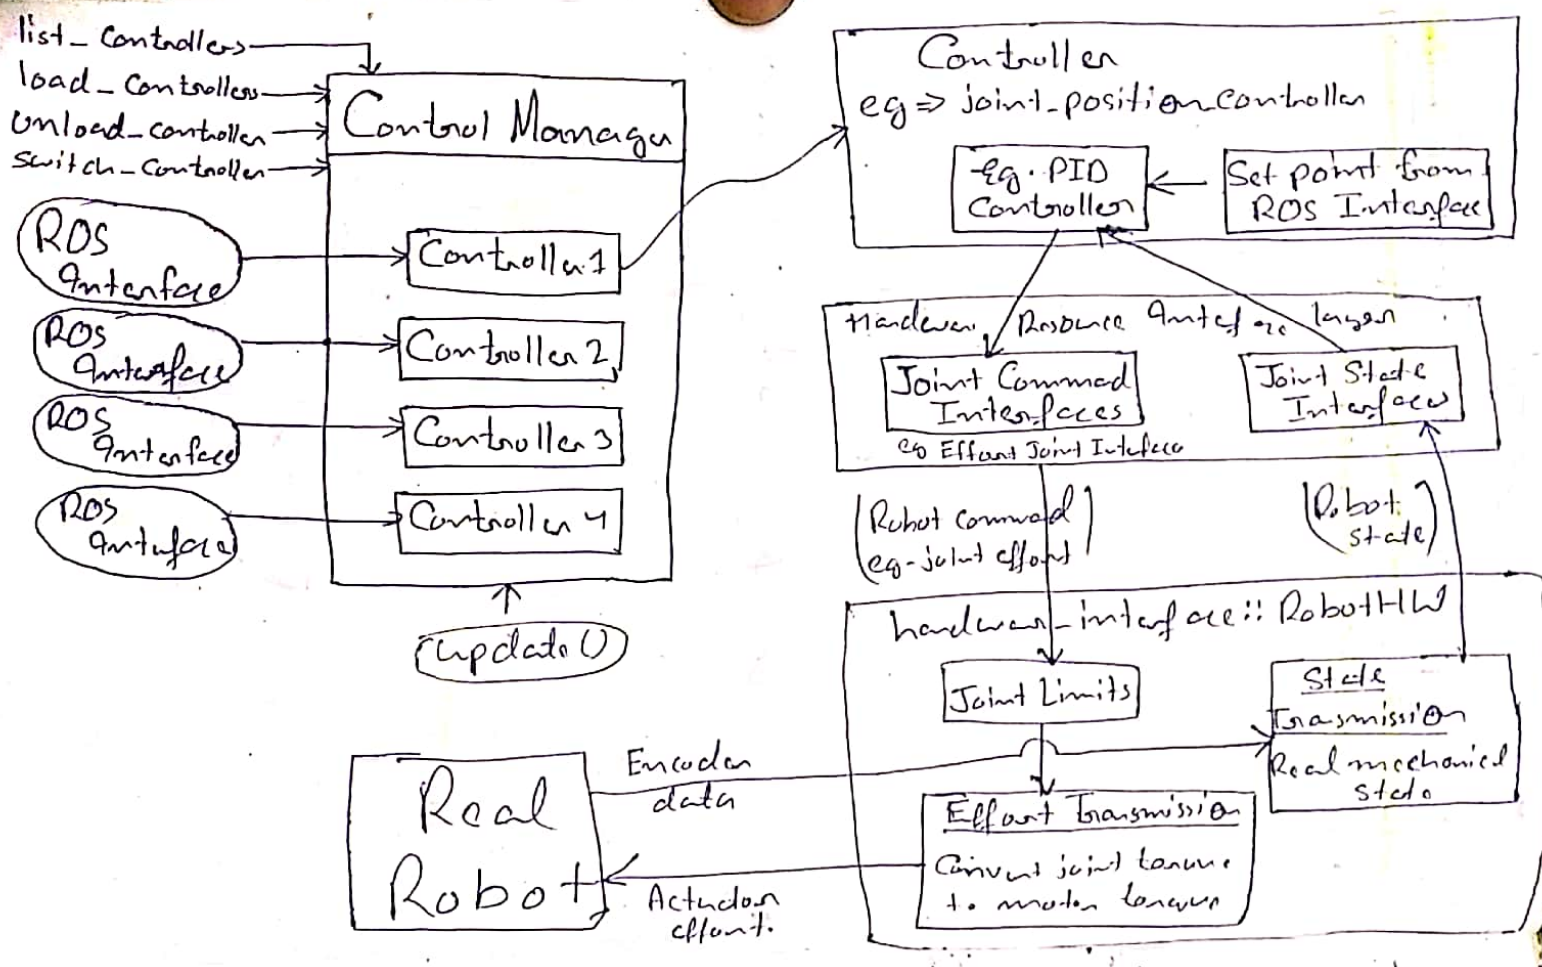 list_controllers
load_controllers
unload_controller
switch_controller
Control Manager
ROS
Interface
Controller 1
ROS
Interface
Controller 2
ROS
Interface
Controller 3
ROS
Interface
Controller 4
update()
Controller
eg => joint_position_controller
eg. PID
Controller
Set point from
ROS Interface
Hardware Resource Interface layer
Joint Commad
Interfaces
eg Effort Joint Interface
Joint State
Interfaces
(Robot command
eg-joint effort)
(Robot
state)
hardware_interface::RobotHW
Joint Limits
State
Trasmission
Real mechanical
State
Effort Transmission
Convert joint torque
to motor torque
Real
Robot
Encoder
data
Actuator
effort.